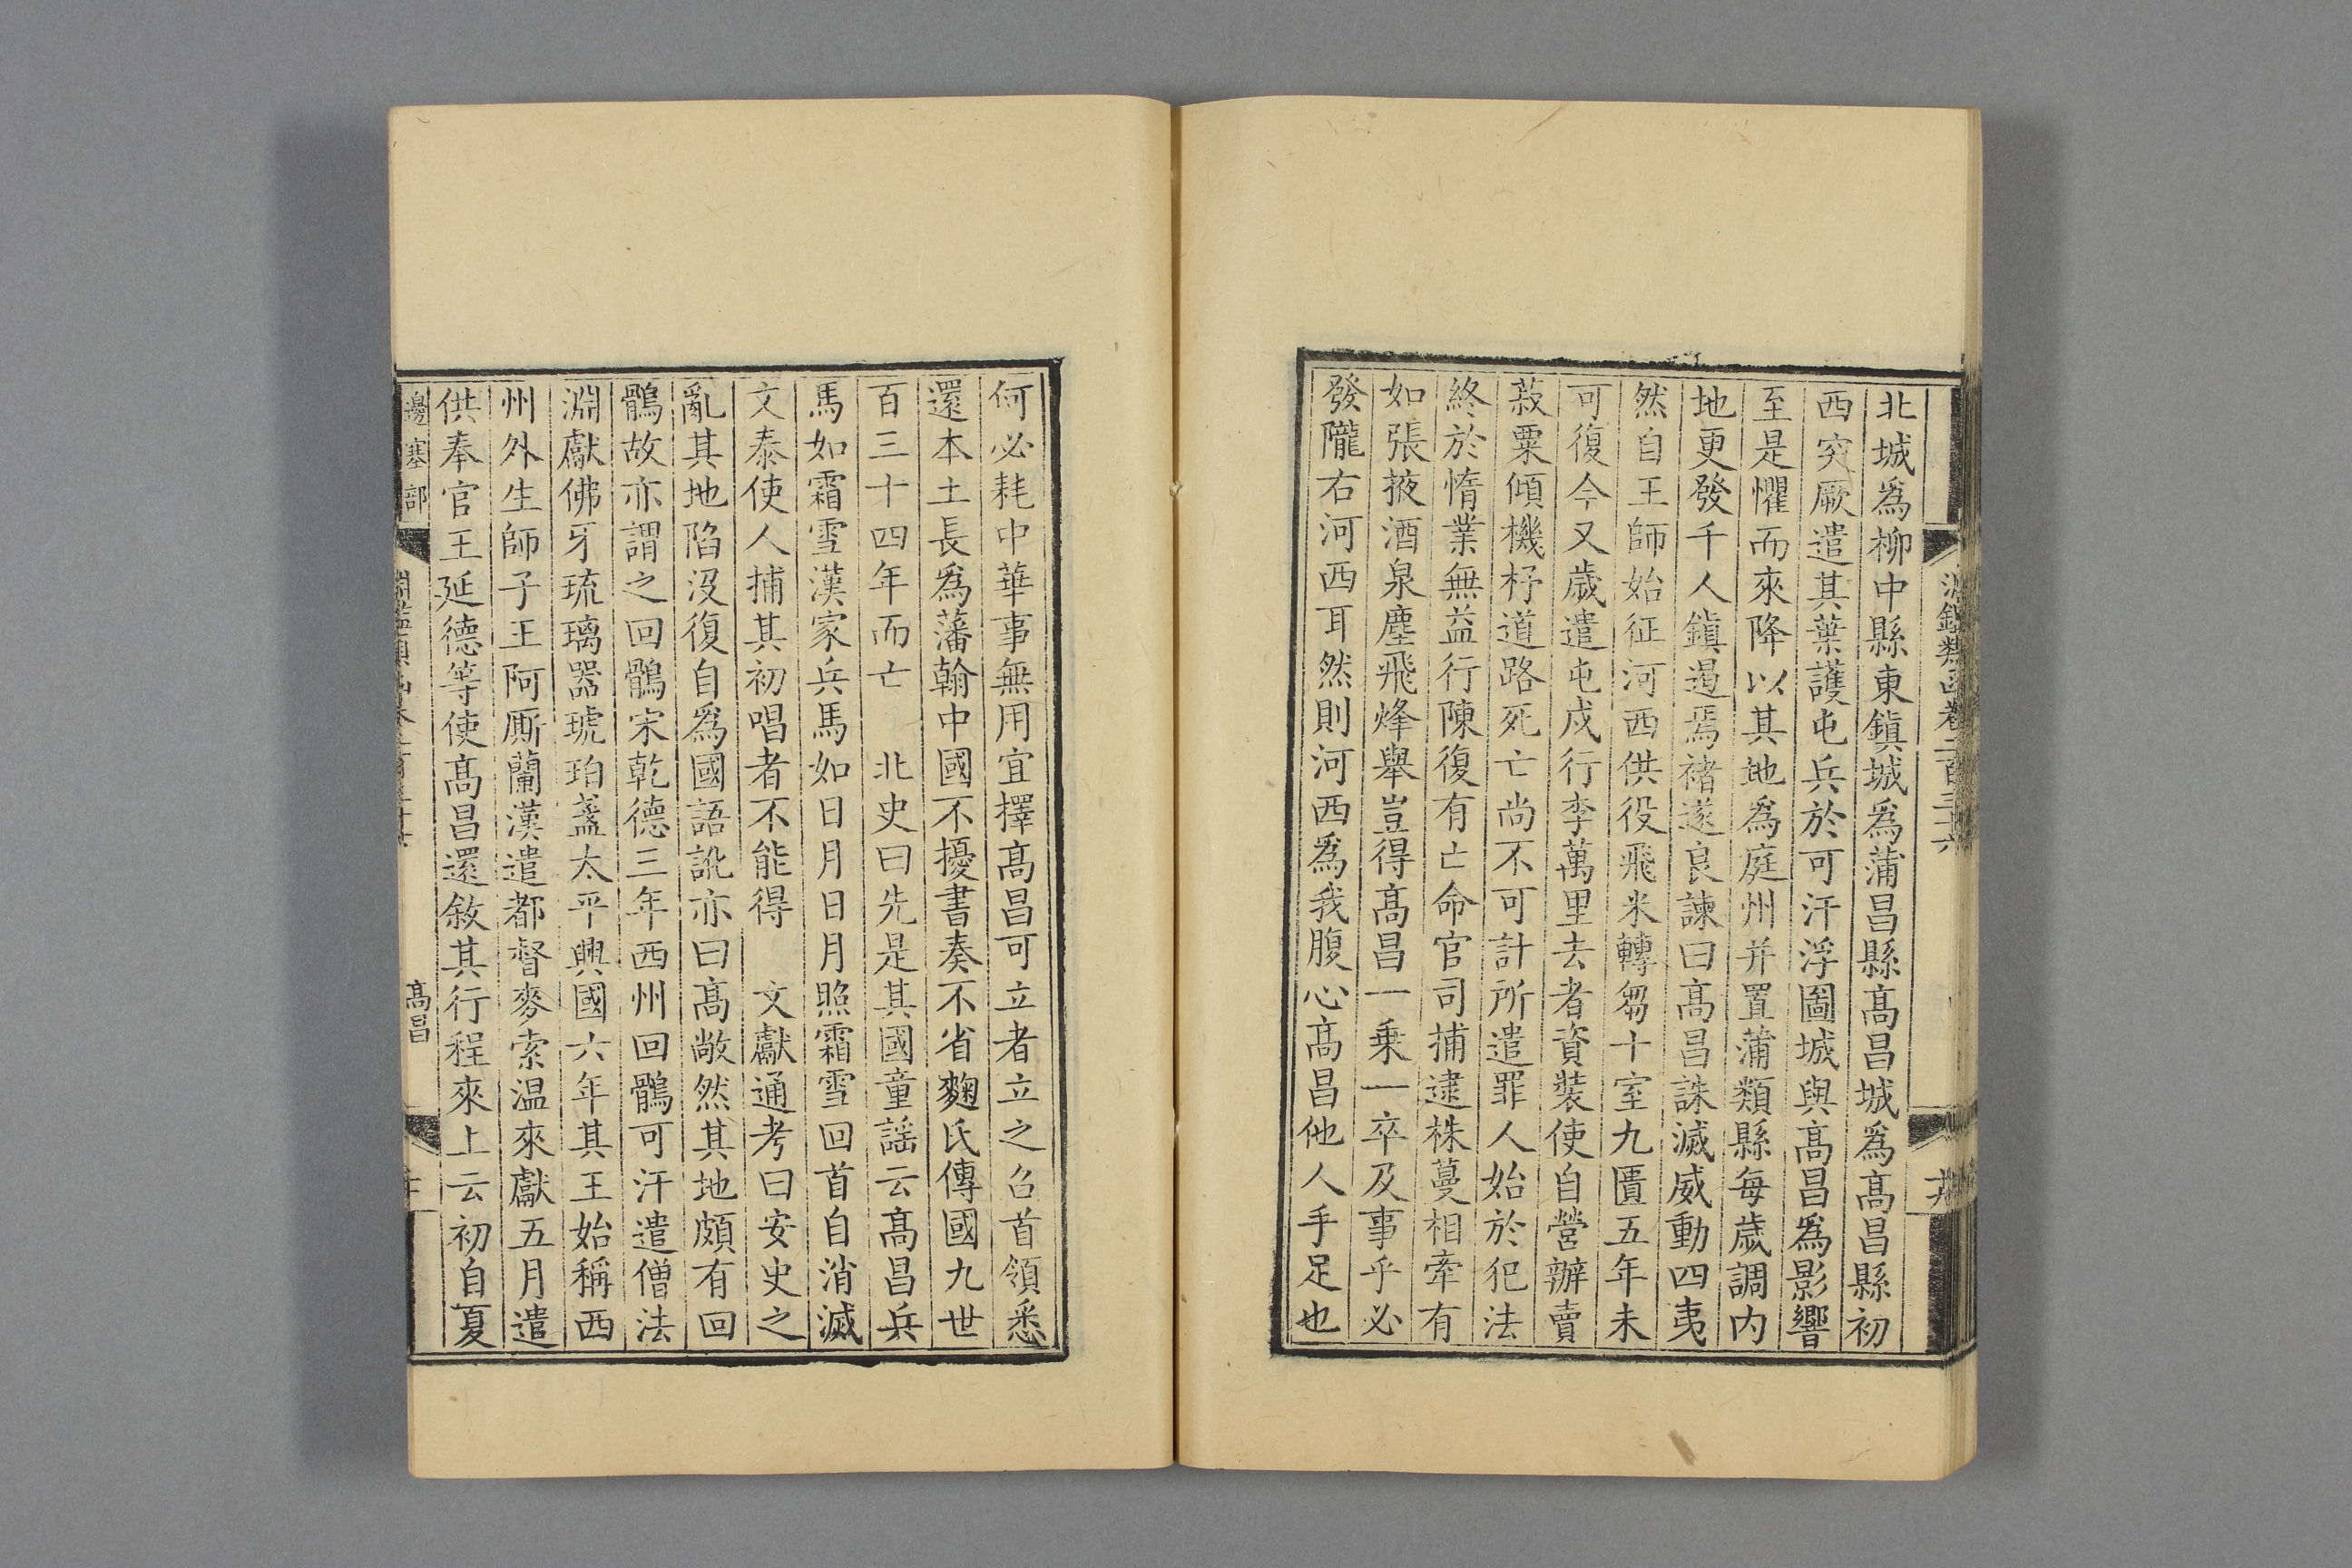 淵鑑類函卷二百三十六
北城爲柳中縣東鎭城爲蒲昌縣髙昌城爲髙昌縣初
西突厥遣其葉護屯兵於可汗浮圖城與髙昌爲影響
至是懼而來降以其地爲庭州并置蒲類縣每歲調内
地更發千人鎭遏焉褚遂良諫曰髙昌誅滅威動四夷
然自王師始征河西供役飛米轉芻十室九匱五年未
可復今又歲遣屯戍行李萬里去者資裝使自營辦賣
菽粟傾機杼道路死亡尚不可計所遣罪人始於犯法
終於惰業無益行陳復有亡命官司捕逮株蔓相牽有
如張掖酒泉塵飛烽舉豈得髙昌一乗一卒及事乎必
發隴右河西耳然則河西爲我腹心髙昌他人手足也
何必耗中華事無用宜擇髙昌可立者立之召首領悉
還本土長爲藩翰中國不擾書奏不省麴氏傳國九世
百三十四年而亡　北史曰先是其國童謡云髙昌兵
馬如霜雪漢家兵馬如日月日月照霜雪回首自消滅
文泰使人捕其初唱者不能得　文獻通考曰安史之
亂其地陷没復自爲國語訛亦曰髙敞然其地頗有回
鶻故亦謂之回鶻宋乾德三年西州回鶻可汗遣僧法
淵獻佛牙琉璃器琥珀盞太平興國六年其王始稱西
州外生師子王阿厮蘭漢遣都督麥索温來獻五月遣
供奉官王延德等使髙昌還敘其行程來上云初自夏
邊塞部
髙昌